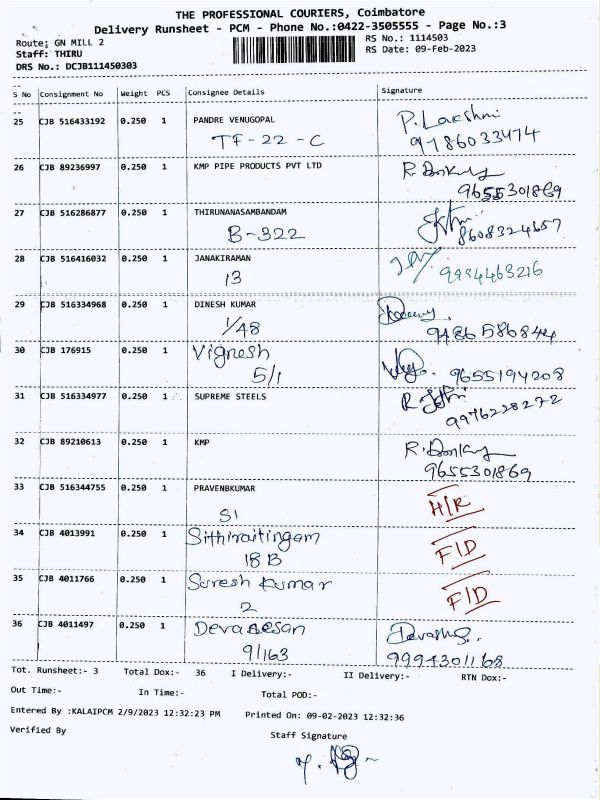 THE PROFESSIONAL COURIERS, Coimbatore
Delivery Runsheet - PCM - Phone No.:0422-3505555 - Page No.:3
Route: GN MILL 2
RS No.: 1114503
Staff: THIRU
RS Date: 09-Feb-2023
DRS No.: DCJB111450303
S No Consignment No Weight PCS Consignee Details Signature
25 CJB 516433192 0.250 1 PANDRE VENUGOPAL P. Lakshmi
TF-22-C 9186033474
26 CJB 89236997 0.250 1 KMP PIPE PRODUCTS PVT LTD
9655301869
27 CJB 516286877 0.250 1 THIRUNANASAMBANDAM
B-322 8608324657
28 CJB 516416032 0.250 1 JANAKIRAMAN
13 9994463216
29 CJB 516334968 0.250 1 DINESH KUMAR
1/48 9486586844
30 CJB 176915 0.250 1 Vignesh
5/1 9655194208
31 CJB 516334977 0.250 1 SUPREME STEELS
9976228272
32 CJB 89210613 0.250 1 KMP
9655301869
33 CJB 516344755 0.250 1 PRAVENBKUMAR H/R
S1
34 CJB 4013991 0.250 1 Sithiraitingam F/D
18 B
35 CJB 4011766 0.250 1 Suresh Kumar F/D
2
36 CJB 4011497 0.250 1
9/163 9994301168
Tot. Runsheet:- 3 Total Dox:- 36 I Delivery:- II Delivery:- RTN Dox:-
Out Time:- In Time:- Total POD:-
Entered By :KALAIPCM 2/9/2023 12:32:23 PM Printed On: 09-02-2023 12:32:36
Verified By
Staff Signature